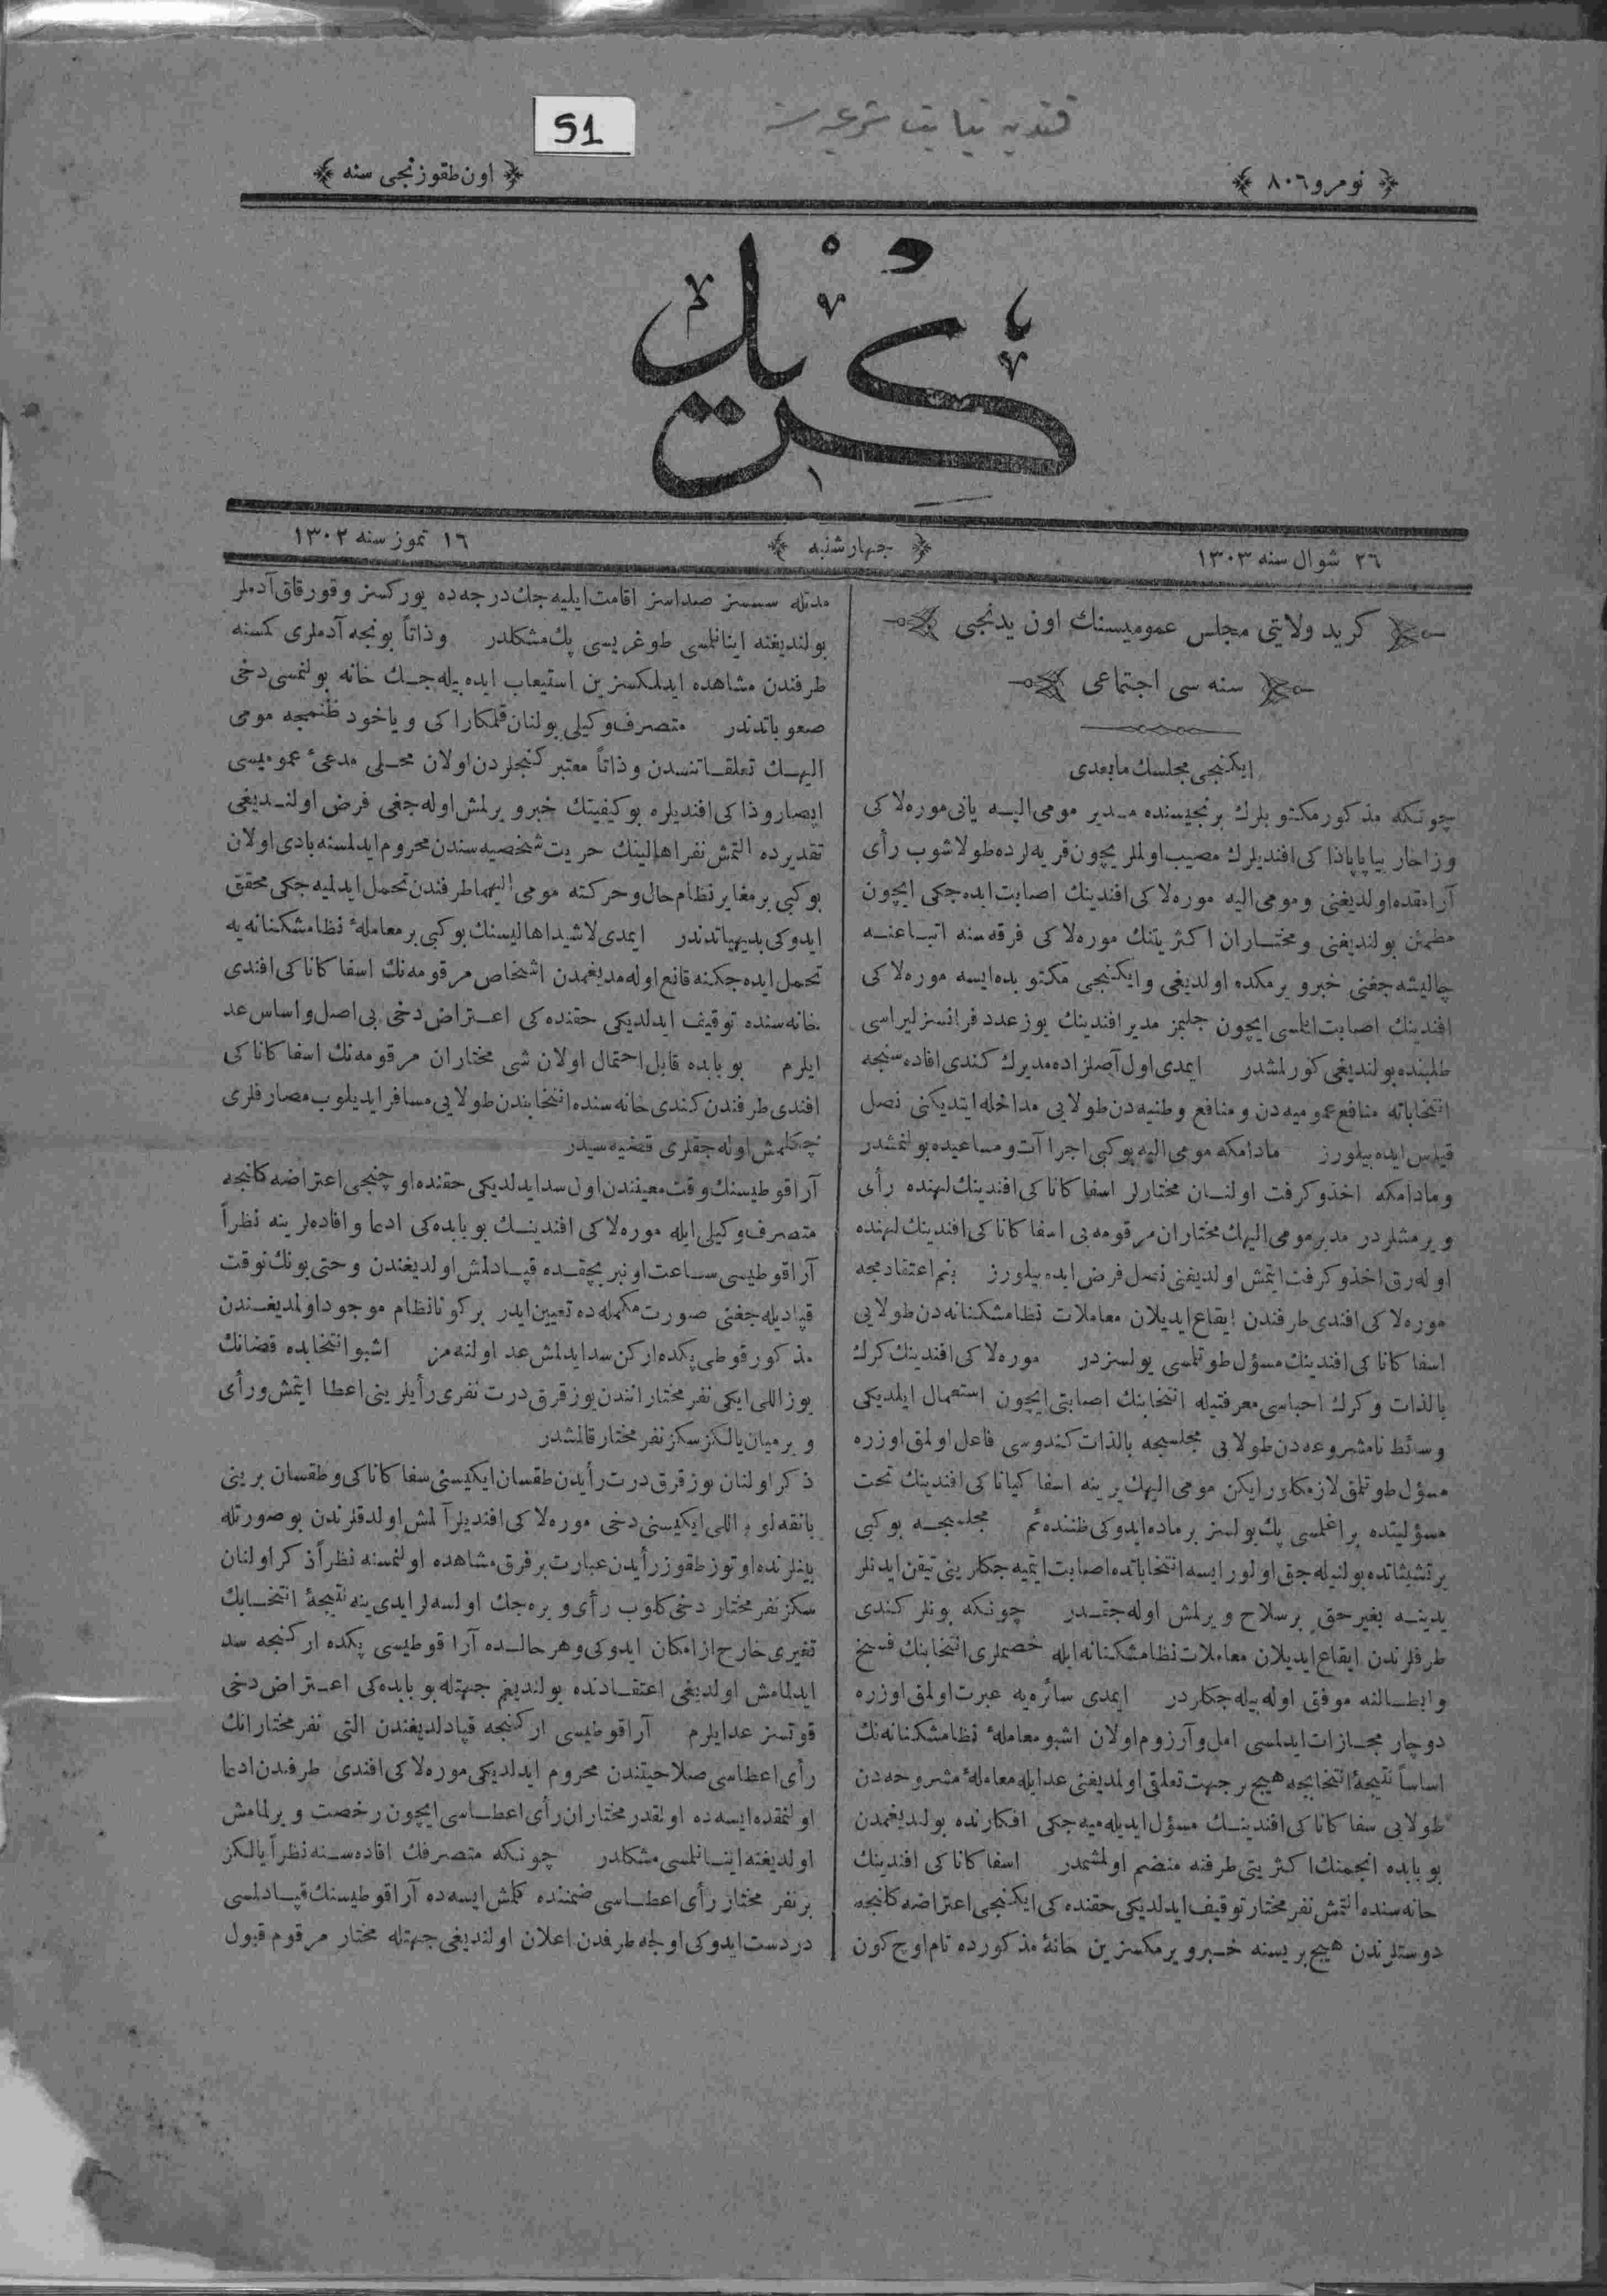 51
نومرو ٨٠٦
اون طقوزنجی سنه
كريد
٢٦ شوال سنه ١٣٠٣
چهارشنبه
١٦ تموز سنه ١٣٠٢
كريد ولايتی مجلس عموميسنك اون يدنجی
سنه سی اجتماعی
ايكنجی مجلسك مابعدی
چونكه مذكور مكتوبلرك برنجيسنده مدير مومی اليه يانی موره لاكی
وزاخاريا پاپاداكی افنديلرك مصيب اولملريچون قريه لرده طولاشوب رأی
آرامقده اولديغنی ومومی اليه موره لاكی افندينك اصابت ايده جكی ايچون
مطمئن بولنديغنی ومختاران اكثريتنك موره لاكی فرقه سنه اتباعنه
چاليشه جغنی خبر ويرمكده اولديغی وايكنجی مكتوبده ايسه موره لاكی
افندينك اصابت ايتلمسی ايچون جلبمز مدير افندينك يوز عدد فرانسز ليراسی
طلبنده بولنديغی كورلمشدر ايمدی اول آصلزاده مديرك كندی افاده سنجه
انتخاباته منافع عموميه دن ومنافع وطنيه دن طولايی مداخله ايتديكنی نصل
قياس ايده بيلورز مادامكه مومی اليه بو كبی اجراآت ومساعيده بولنمشدر
ومادامكه اخذ وكرفت اولنان مختارلر اسفاكاناكی افندينك لهنده رأی
ويرمشلردر مدير مومی اليهك مختاران مرقومه يی اسفاكاناكی افندينك لهنده
اوله رق اخذ وكرفت ايتمش اولديغنی نصل فرض ايده بيلورز بنم اعتقادمجه
موره لاكی افندی طرفندن ايقاع ايديلان معاملات نظامشكنانه دن طولايی
اسفاكاناكی افندينك مسؤل طوتلمسی يولسزدر موره لاكی افندينك كرك
بالذات وكرك احباسی معرفتيله انتخابنك اصابتی ايچون استعمال ايلديكی
وسائط نامشروعه دن طولايی مجلسجه بالذات كندوسی فاعل اولمق اوزره
مسؤل طوتلمق لازمكلور ايكن مومی اليهك يرينه اسفاكياناكی افندينك تحت
مسؤليتده براغلمسی پك يولسز بر ماده ايدوكی ظننده يم مجلسجه بو كبی
بر تشبثاتده بولنيله جق اولور ايسه انتخاباتده اصابت ايتميه جكلرينی تيقن ايدنلر
يدينه بغير حق بر سلاح ويرلمش اوله جقدر چونكه بونلر كندی
طرفلرندن ايقاع ايديلان معاملات نظامشكنانه ايله خصملری انتخابنك فسخ
وابطالنه موفق اوله بيله جكلردر ايمدی سائره يه عبرت اولمق اوزره
دوچار مجازات ايدلمسی امل وآرزوم اولان اشبو معاملهٔ نظامشكنانه نك
اساساً نتيجهٔ انتخابجه هيچ بر جهت تعلقی اولمديغنی عد ايله معاملهٔ مشروحه دن
طولايی سفاكاناكی افندينك مسؤل ايديله ميه جكی افكارنده بولنديغمدن
بو بابده انجمنك اكثريتی طرفنه منضم اولمشمدر اسفاكاناكی افندينك
خانه سنده التمش نفر مختار توقيف ايدلديكی حقنده كی ايكنجی اعتراضه كلنجه
دوستلرندن هيچ بريسنه خبر ويرمكسزين خانهٔ مذكورده تام اوچ كون
مدتله سسسز صداسز اقامت ايليه جك درجه ده يوركسز وقورقاق آدملر
بولنديغنه اينانلمسی طوغريسی پك مشكلدر وذاتاً بونجه آدملری كمسنه
طرفندن مشاهده ايدلمكسزين استيعاب ايده بيله جك خانه بولنمسی دخی
صعوباتدندر متصرف وكيلی بولنان قلمكاراكی وياخود ظنمجه مومی
اليهك تعلقاتندن وذاتاً معتبر كنجلردن اولان محلی مدعیٔ عموميسی
ايصاروذاكی افنديلره بو كيفيتك خبر ويرلمش اوله جغی فرض اولنديغی
تقديرده التمش نفر اهالينك حريت شخصيه سندن محروم ايدلمسنه بادی اولان
بو كبی بر مغاير نظام حال وحركته مومی اليهما طرفندن تحمل ايدلميه جكی محقق
ايدوكی بديهياتدندر ايمدی لاشيدا هاليسنك بو كبی بر معاملهٔ نظامشكنانه يه
تحمل ايده جكنه قانع اوله مديغمدن اشخاص مرقومه نك اسفاكاناكی افندی
خانه سنده توقيف ايدلديكی حقنده كی اعتراض دخی بی اصل واساس عد
ايلرم بو بابده قابل احتمال اولان شی مختاران مرقومه نك اسفاكاناكی
افندی طرفندن كندی خانه سنده انتخابندن طولايی مسافر ايديلوب مصارفلری
چكلمش اوله جقلری قضيه سيدر
آرا قوطيسنك وقت معينندن اول سد ايدلديكی حقنده اوچنجی اعتراضه كلنجه
متصرف وكيلی ايله موره لاكی افندينك بو بابده كی ادعا وافاده لرينه نظراً
آرا قوطيسی ساعت اونبر بچقده قپادلمش اولديغندن وحتی بونك نوقت
قپاديله جغنی صورت مكمله ده تعيين ايدر بر كونا نظام موجود اولمديغندن
مذكور قوطی پكده اركن سد ايدلمش عد اولنه مز اشبو انتخابده قضانك
يوز اللی ايكی نفر مختارانندن يوز قرق درت نفری رأيلرينی اعطا ايتمش ورأی
ويرميان يالكز سكز نفر مختار قالمشدر
ذكر اولنان يوز قرق درت رأيدن طقسان ايكيسنی سفاكاناكی وطقسان برينی
يانقه لو واللی ايكيسنی دخی موره لاكی افنديلر آلمش اولدقلرندن بو صورتله
بينلرنده اوتوز طقوز رأيدن عبارت بر فرق مشاهده اولنمسنه نظراً ذكر اولنان
سكز نفر مختار دخی كلوب رأی ويره جك اولسه لر ايدی ينه نتيجهٔ انتخابك
تغيری خارج از امكان ايدوكی وهر حالده آرا قوطيسی پكده اركنجه سد
ايدلمامش اولديغی اعتقادنده بولنديغم جهتله بو بابده كی اعتراض دخی
قوتسز عد ايلرم آرا قوطيسی اركنجه قپادلديغندن التی نفر مختارانك
رأی اعطاسی صلاحيتندن محروم ايدلديكی موره لاكی افندی طرفندن ادعا
اولنمقده ايسه ده اولقدر مختاران رأی اعطاسی ايچون رخصت ويرلمامش
اولديغنه اينانلمسی مشكلدر چونكه متصرفك افاده سنه نظراً يالكز
بر نفر مختار رأی اعطاسی ضمننده كلمش ايسه ده آرا قوطيسنك قپادلمسی
دردست ايدوكی اولجه طرفدن اعلان اولنديغی جهتله مختار مرقوم قبول